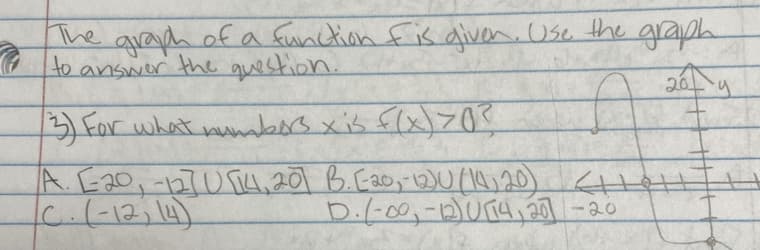 The graph of a function f is given. Use the graph
to answer the question.
20 y
3) For what numbers x is f(x) > 0?
A. [-20, -12] U [14, 20] B. [-20, -12) U (14, 20)
C. (-12, 14) D. (-∞, -12) U [14, 20] -20